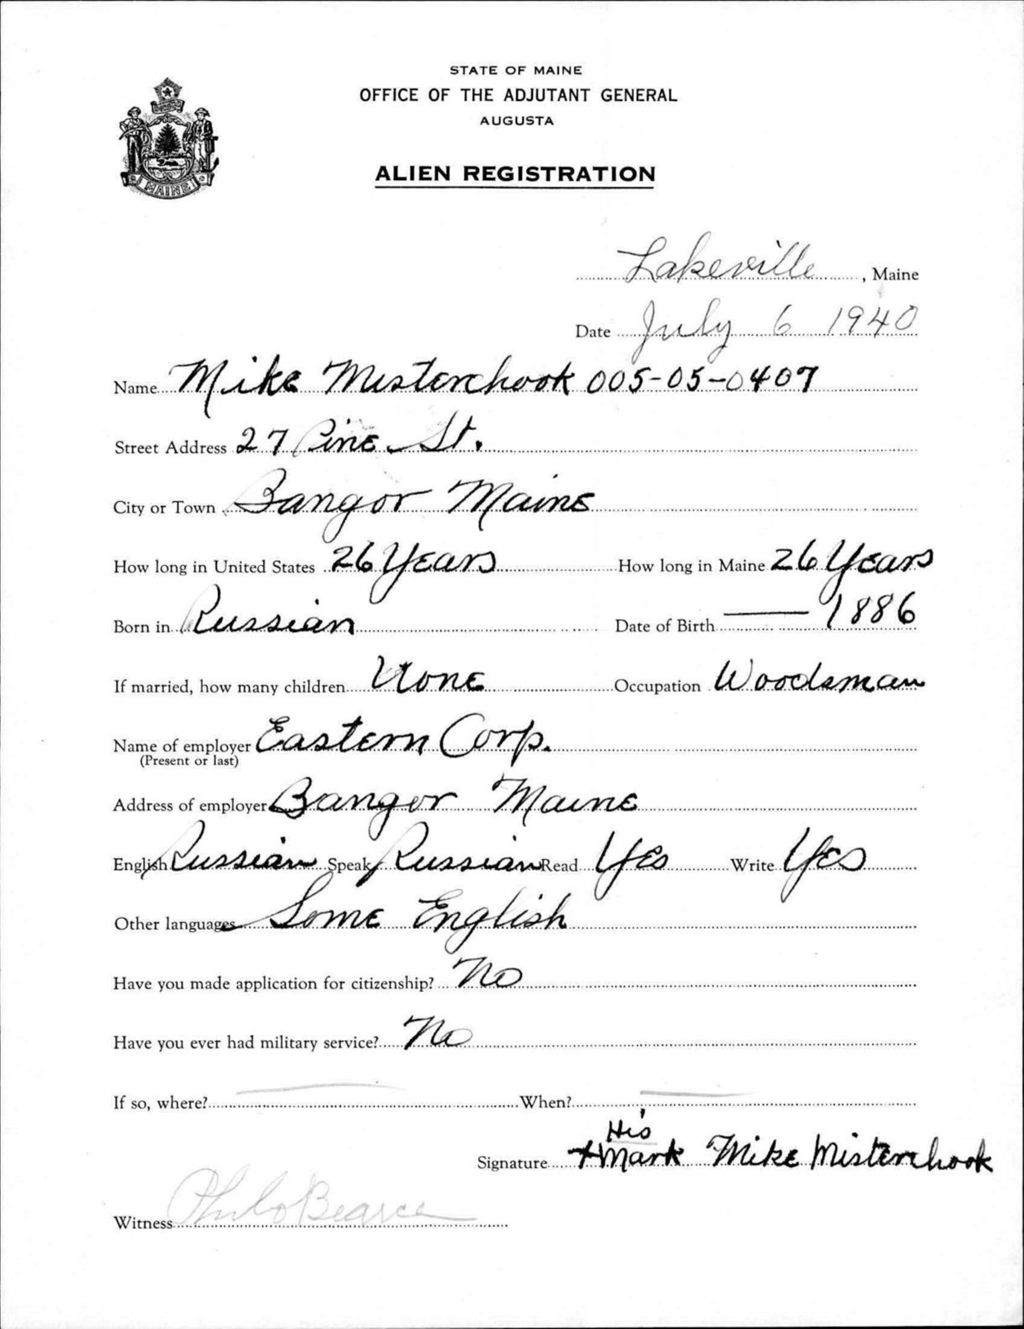 STATE OF MAINE
OFFICE OF THE ADJUTANT GENERAL
AUGUSTA
ALIEN REGISTRATION
MAINE
Lakeville, Maine
Date July 6 1940
Name Mike Misterchook 005-05-0407
Street Address 27 Pine St.
City or Town Bangor Maine
How long in United States 26 Years How long in Maine 26 Years
Born in Russian Date of Birth — 1886
If married, how many children None Occupation Woodsman
Name of employer Eastern Corp.
(Present or last)
Address of employer Bangor Maine
English Russian Speak Russian Read Yes Write Yes
Other languages Some English
Have you made application for citizenship? No
Have you ever had military service? No
If so, where? — When? —
His
Signature X Mark Mike Misterchook
Witness Philo Bearce